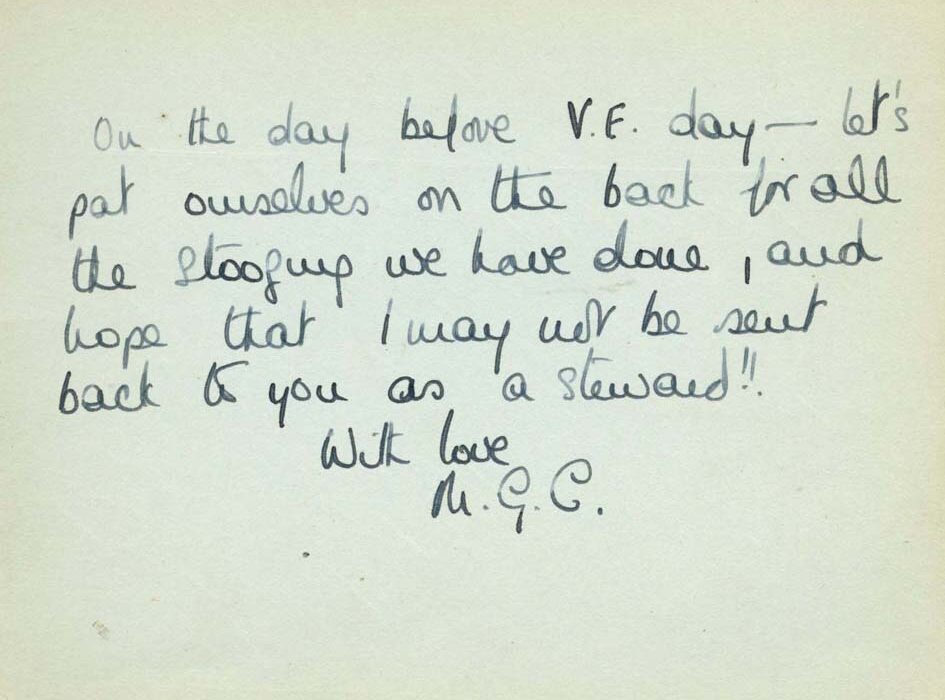 On the day before V.E. day — let's
pat ourselves on the back for all
the stooging we have done, and
hope that I may not be sent
back to you as a steward!!
With love
M.G.C.